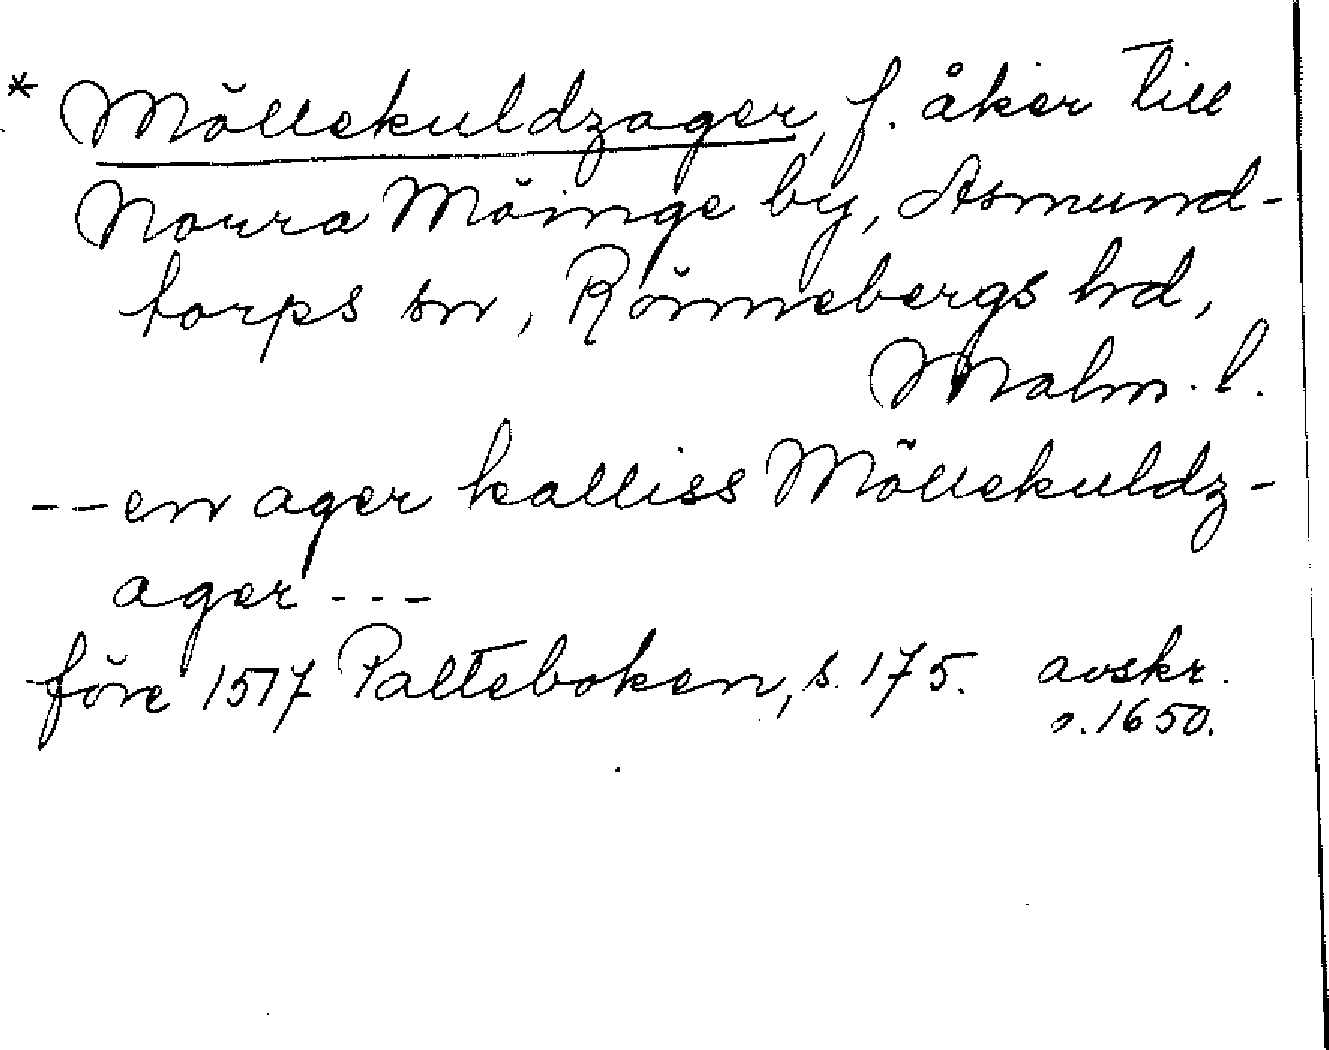 * Möllekuldzager, f. åker till
Norra Möinge by, Asmund-
torps sn, Rönnebergs hd,
Malm. l.
--en ager kalliss Möllekuldz-
ager ---
före 1517 Palteboken, s. 175. avskr.
o. 1650.